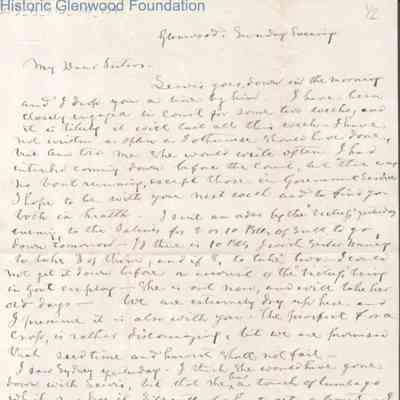 Historic Glenwood Foundation
42
Glenwood, Sunday Evening
My Dear Sisters.
Lewis goes down in the morning
and I drop you a line by him. I have been
closely engaged in Court for some two weeks, and
it is likely it will last all this week. I have
not written as often as I otherwise should have done,
but told me she would write often. I had
intended coming down before the Court, but there was
no boat running, except those in Government Service
I hope to be with you next week and to find you
both in health. I sent an order by the "Relief" yesterday
evening, to the Salines for 8 or 10 Bbls of Salt to go
down tomorrow - If there is 10 Bbls I wish
to take 3 of them, and if 8, to take two. I could
not get it down before on account of the "Relief" being
in Govt employ - She is out now, and will take her
old days - We are extremely dry up here, and
I presume it is also with you. The prospect for a
Crop, is rather discouraging, but we are promised
that seedtime and harvest shall not fail -
I saw Sydney yesterday - I think she would have gone
down with Lewis, but that she has a touch of lumbago